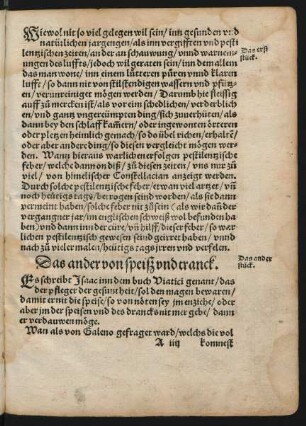 Wiewol nit so viel gelegen wil sein / inn gesunden vnd
natürlichen jargengen / als inn vergifften vnd pesti
lentzischen zeiten / an der an schawung / vnnd warnen-
ungen des luffts / jedoch wil geraten sein / inn dem luffts
das man wone / inn einem lütteren püren vnnd klaren
luffte / so dann nit von stilstendigen wassern vnd pfütz-
en / verunreiniget mögen werden / Darumb hie fleissig
auff zu mercken ist / als vor eim schedlichen / verderblich
en / vnd gantz vngereümpten ding / sich zuuerhüten / als
dann bey den schlaff kamern / oder ingewonten örteren
oder pletzen heimlich gemach / so do übel riechen / erhabē
oder aber ander ding / so diesen vergleicht mögen wer-
den. Wann hieraus warlichen erfolgen pestilentzische
feber / welche dann on diß / zu diesen zeiten / vns nur zů
viel / von himelischer Constellacian anzeigt werden.
Durch solche pestilentzische feber / etwan viel artzet / vñ
noch heütigs tags / betrogen sein worden / als sie dann
vermeint haben / solche feber nit zů sein (als wir dañ der
vergangner jar / im englischen schweiß wol befunden ha
ben) vnd dann inn der cure / vñ hilff dieser feber / so war
lichen pestilentzisch gewesen sein geirret haben / vnnd
nach zů vielermalen / heütigs tags jrren vnd verfelen.
Das erst
stuck.
Das ander von speiß vnd tranck.
Das ander
stuck.
Es schreibt Isaac inn dem buch Viatici genant / das
der pfleger der gesuntheit / sol den magen bewaren /
damit er nit die speise / so von nöten sey jm enziehe / oder
aber jm der speisen vnd des drancks nit mer gebe / dann
er verdauwen möge.
Wan als von Galeno gefraget ward / welchs die vol
A iiij komnest